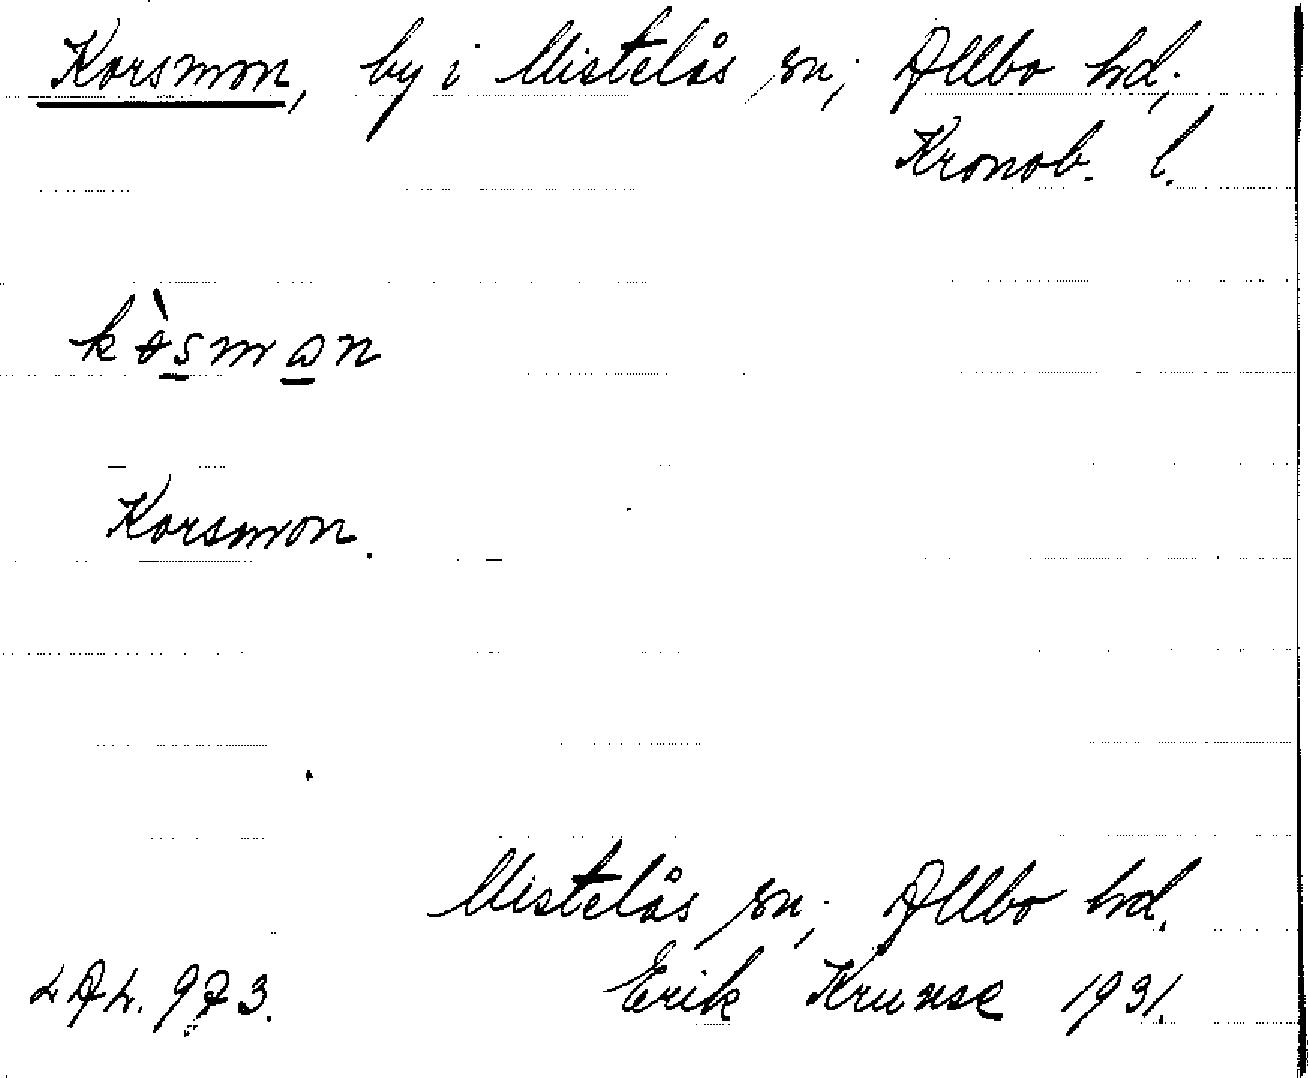 Korsmon, by i Mistelås sn; Allbo hd;
Kronob. l.
kòsmon
Korsmon.
Mistelås sn; Allbo hd.
LAL. 973. Erik Kruuse 1931.